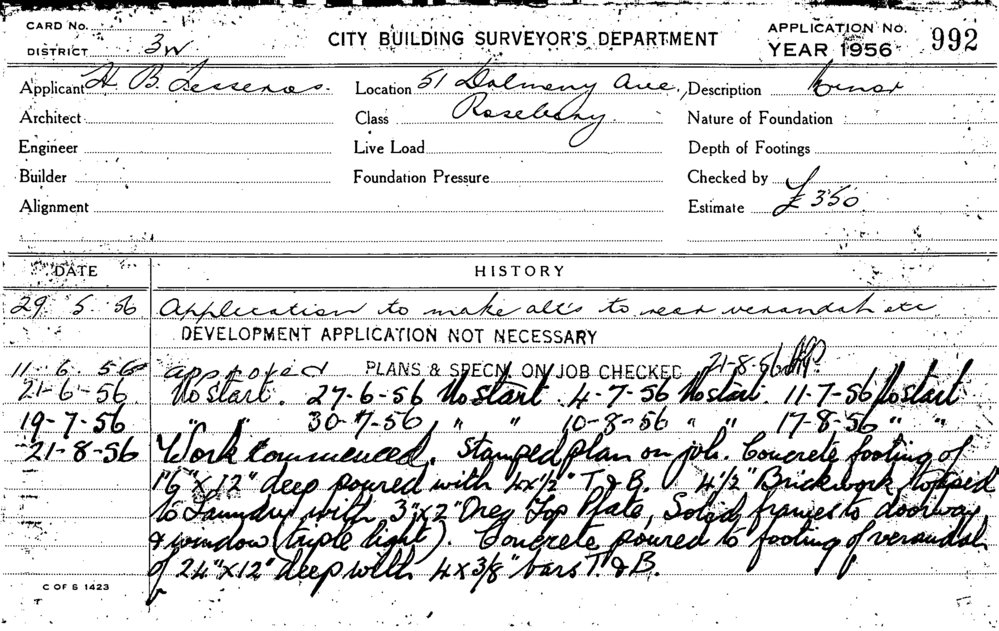 CARD No.
DISTRICT 3W
CITY BUILDING SURVEYOR'S DEPARTMENT
APPLICATION No. 992
YEAR 1956
Applicant H. B. Location 51 Dalmeny Ave., Description Minor
Rosebery
Architect Class Nature of Foundation
Engineer Live Load Depth of Footings
Builder Foundation Pressure Checked by
Alignment Estimate £350
DATE HISTORY
29 5 56 Application to make alts to rear verandah etc
DEVELOPMENT APPLICATION NOT NECESSARY
11. 6. 56 approved PLANS & SPECN. ON JOB CHECKED 21-8-56
21-6-56 No start. 27-6-56 No start. 4-7-56 No start. 11-7-56 No start
19-7-56 " " 30-7-56 " " 10-8-56 " " 17-8-56 " "
21-8-56 Work commenced. Stamped plan on job. Concrete footing of
1'6" x 12" deep poured with 4x½" T. & B. 4½" Brickwork topped
to Laundry with 3"x2" Oreg Top Plate, Solid frames to doorway
& window (triple light). Concrete poured to footing of verandah
of 24"x12" deep with 4x3/8" bars T. & B.
C OF S 1423